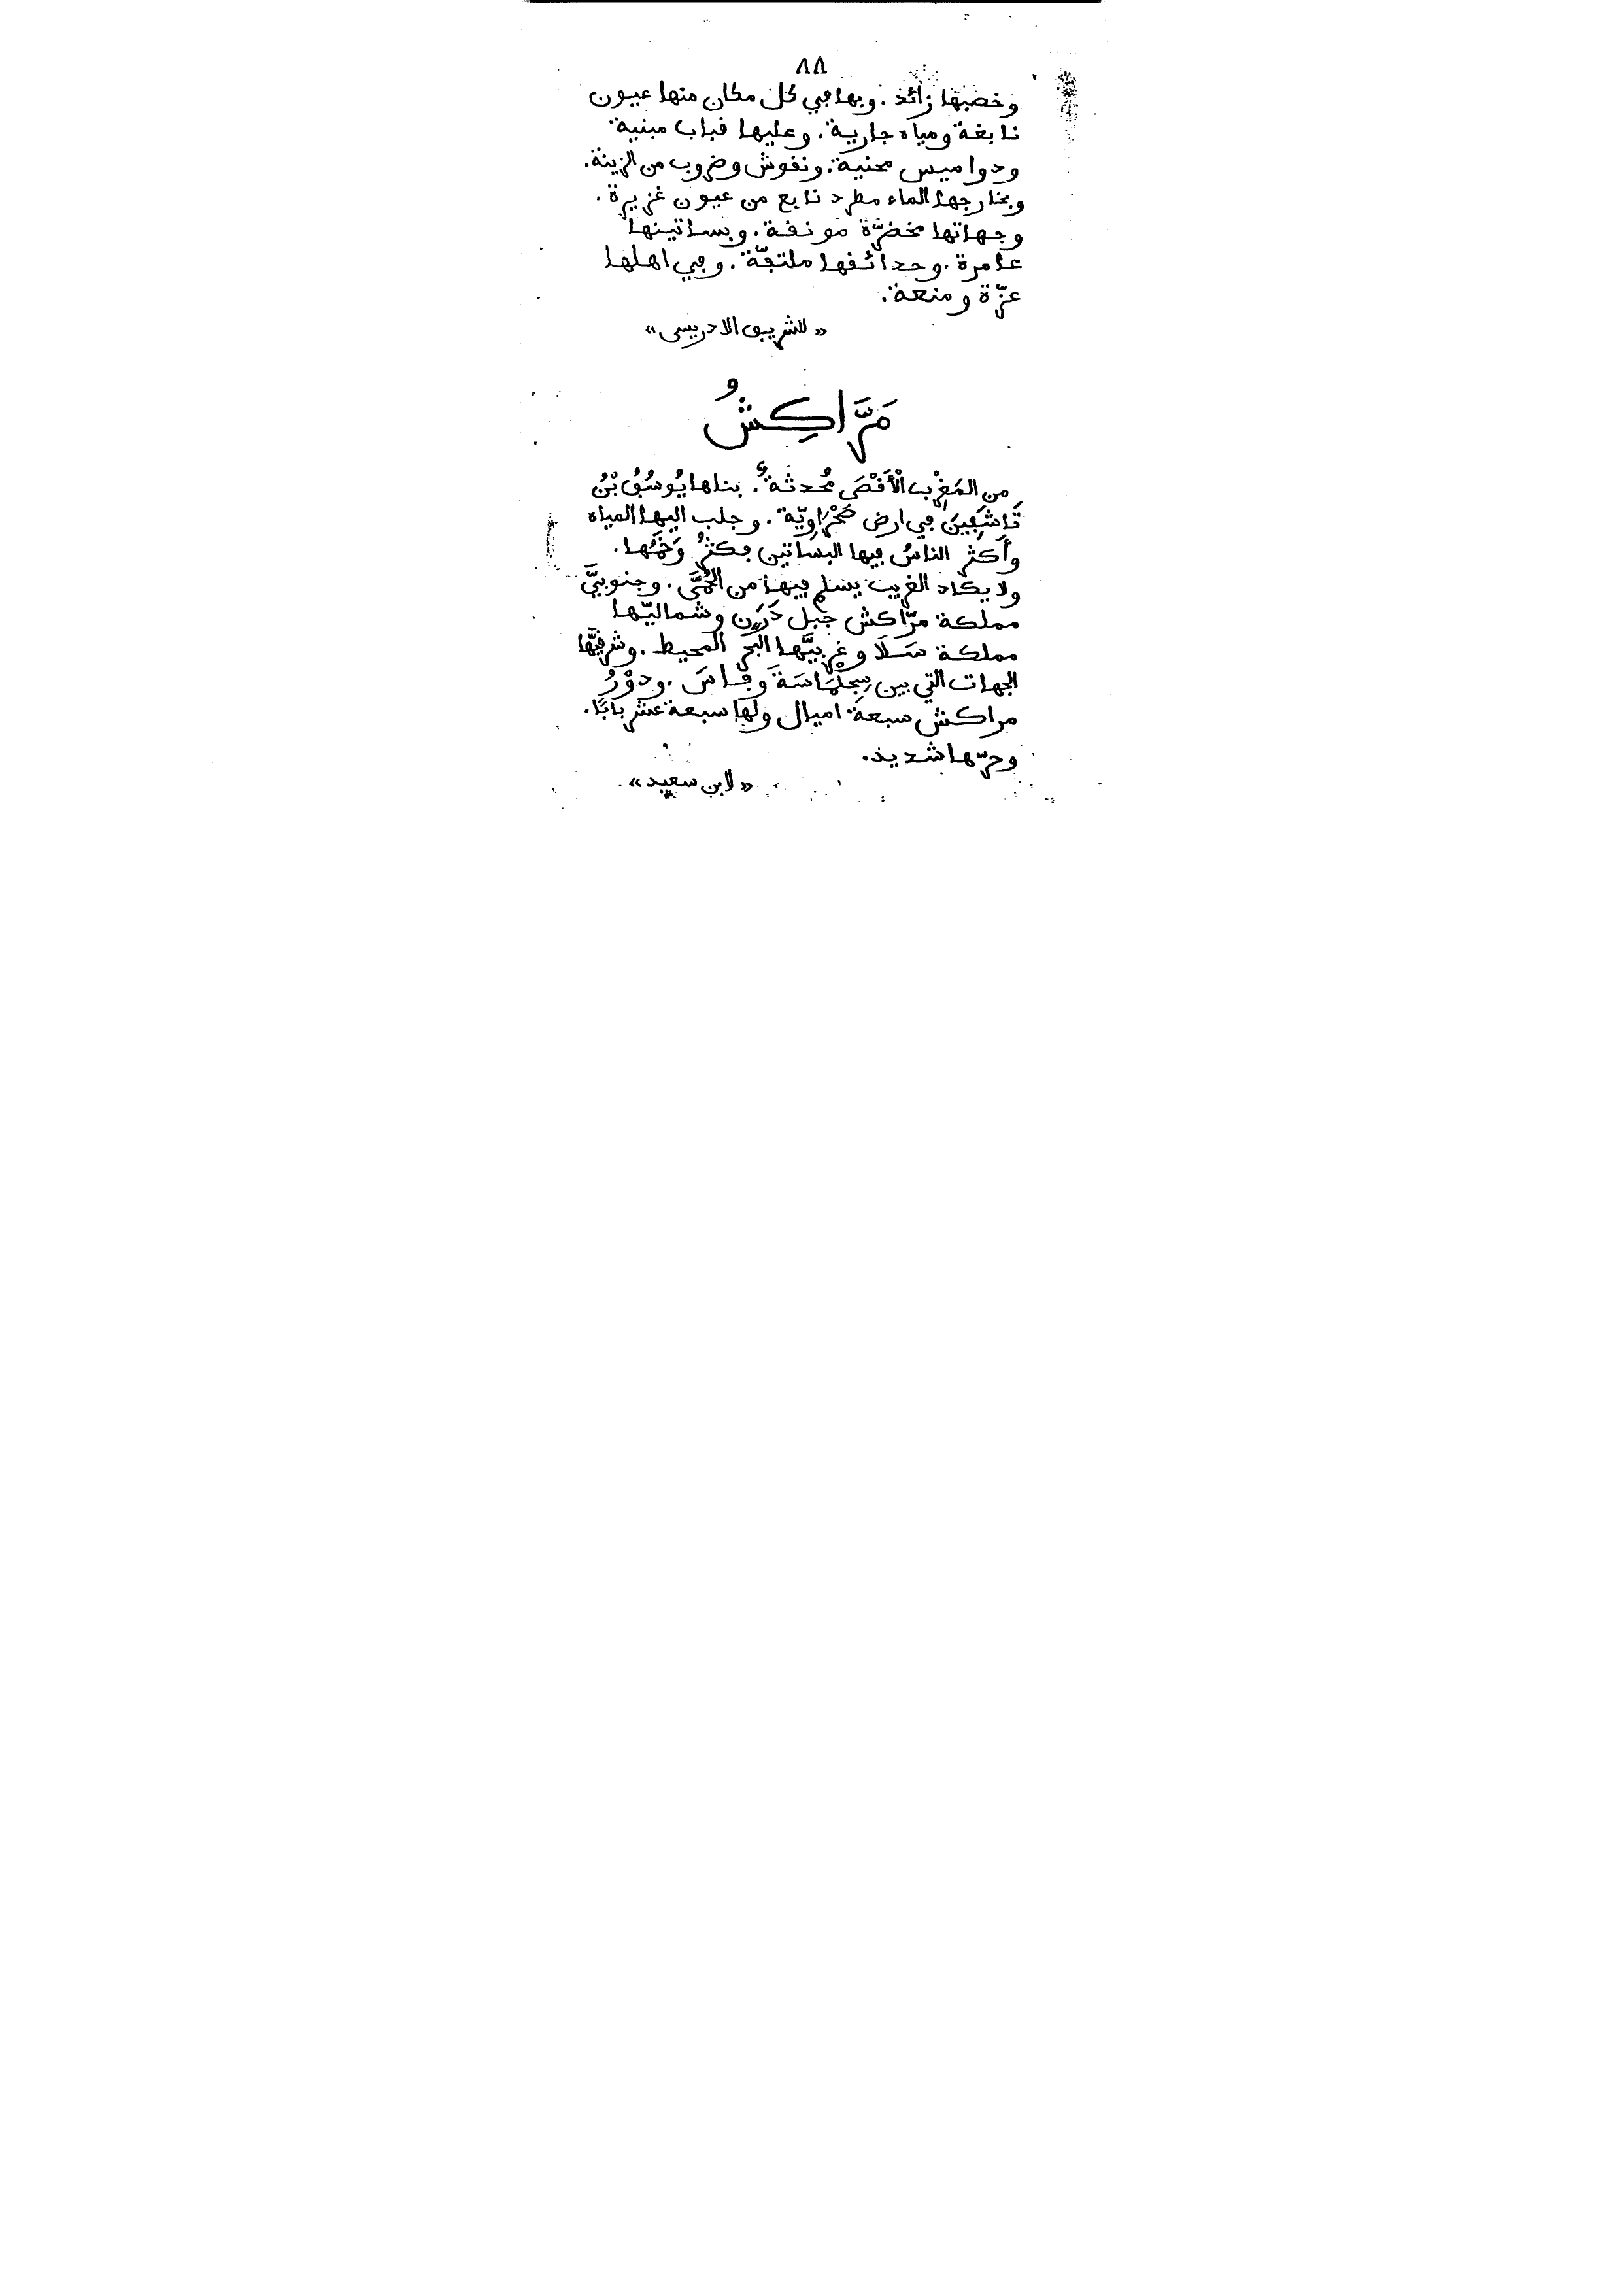 ٨٨
وخصبها زائد. وبها في كل مكان منها عيون
نابغة ومياه جارية. وعليها قباب مبنية
ودواميس محنية. ونقوش وضروب من الزينة.
وبخارجها الماء مطرد نابع من عيون غزيرة.
وجهاتها مخضرّة مونقة. وبساتينها
عامرة. وحدائقها ملتفّة. وفي اهلها
عزّة ومنعة.
«للشريف الادريسى»
مَرَّاكِشُ
من المَغْرِب الْأَقْصَى مُحدثةٌ. بناها يُوسُفُ بْنُ
تَاشَفِينَ في ارض صَحْرَاوِيّة. وجلب اليها المياه
وأَكثر الناسُ فيها البسَاتين فكثرُ وَخَمُها.
ولا يكاد الغريب يسلم فيها من الحُمَّى. وجنوبيَّ
مملكة مرّاكش جبل دَرَن وشماليّها
مملكة سَلَا وغربيَّها البحر المحيط. وشرقيَّها
الجهات التي بين سِجِلْمَاسَةَ وفَاسَ. ودوْرُ
مراكش سبعة اميال ولها سبعة عشر بابًا.
وحرّها شديد.
«لابن سعيد»